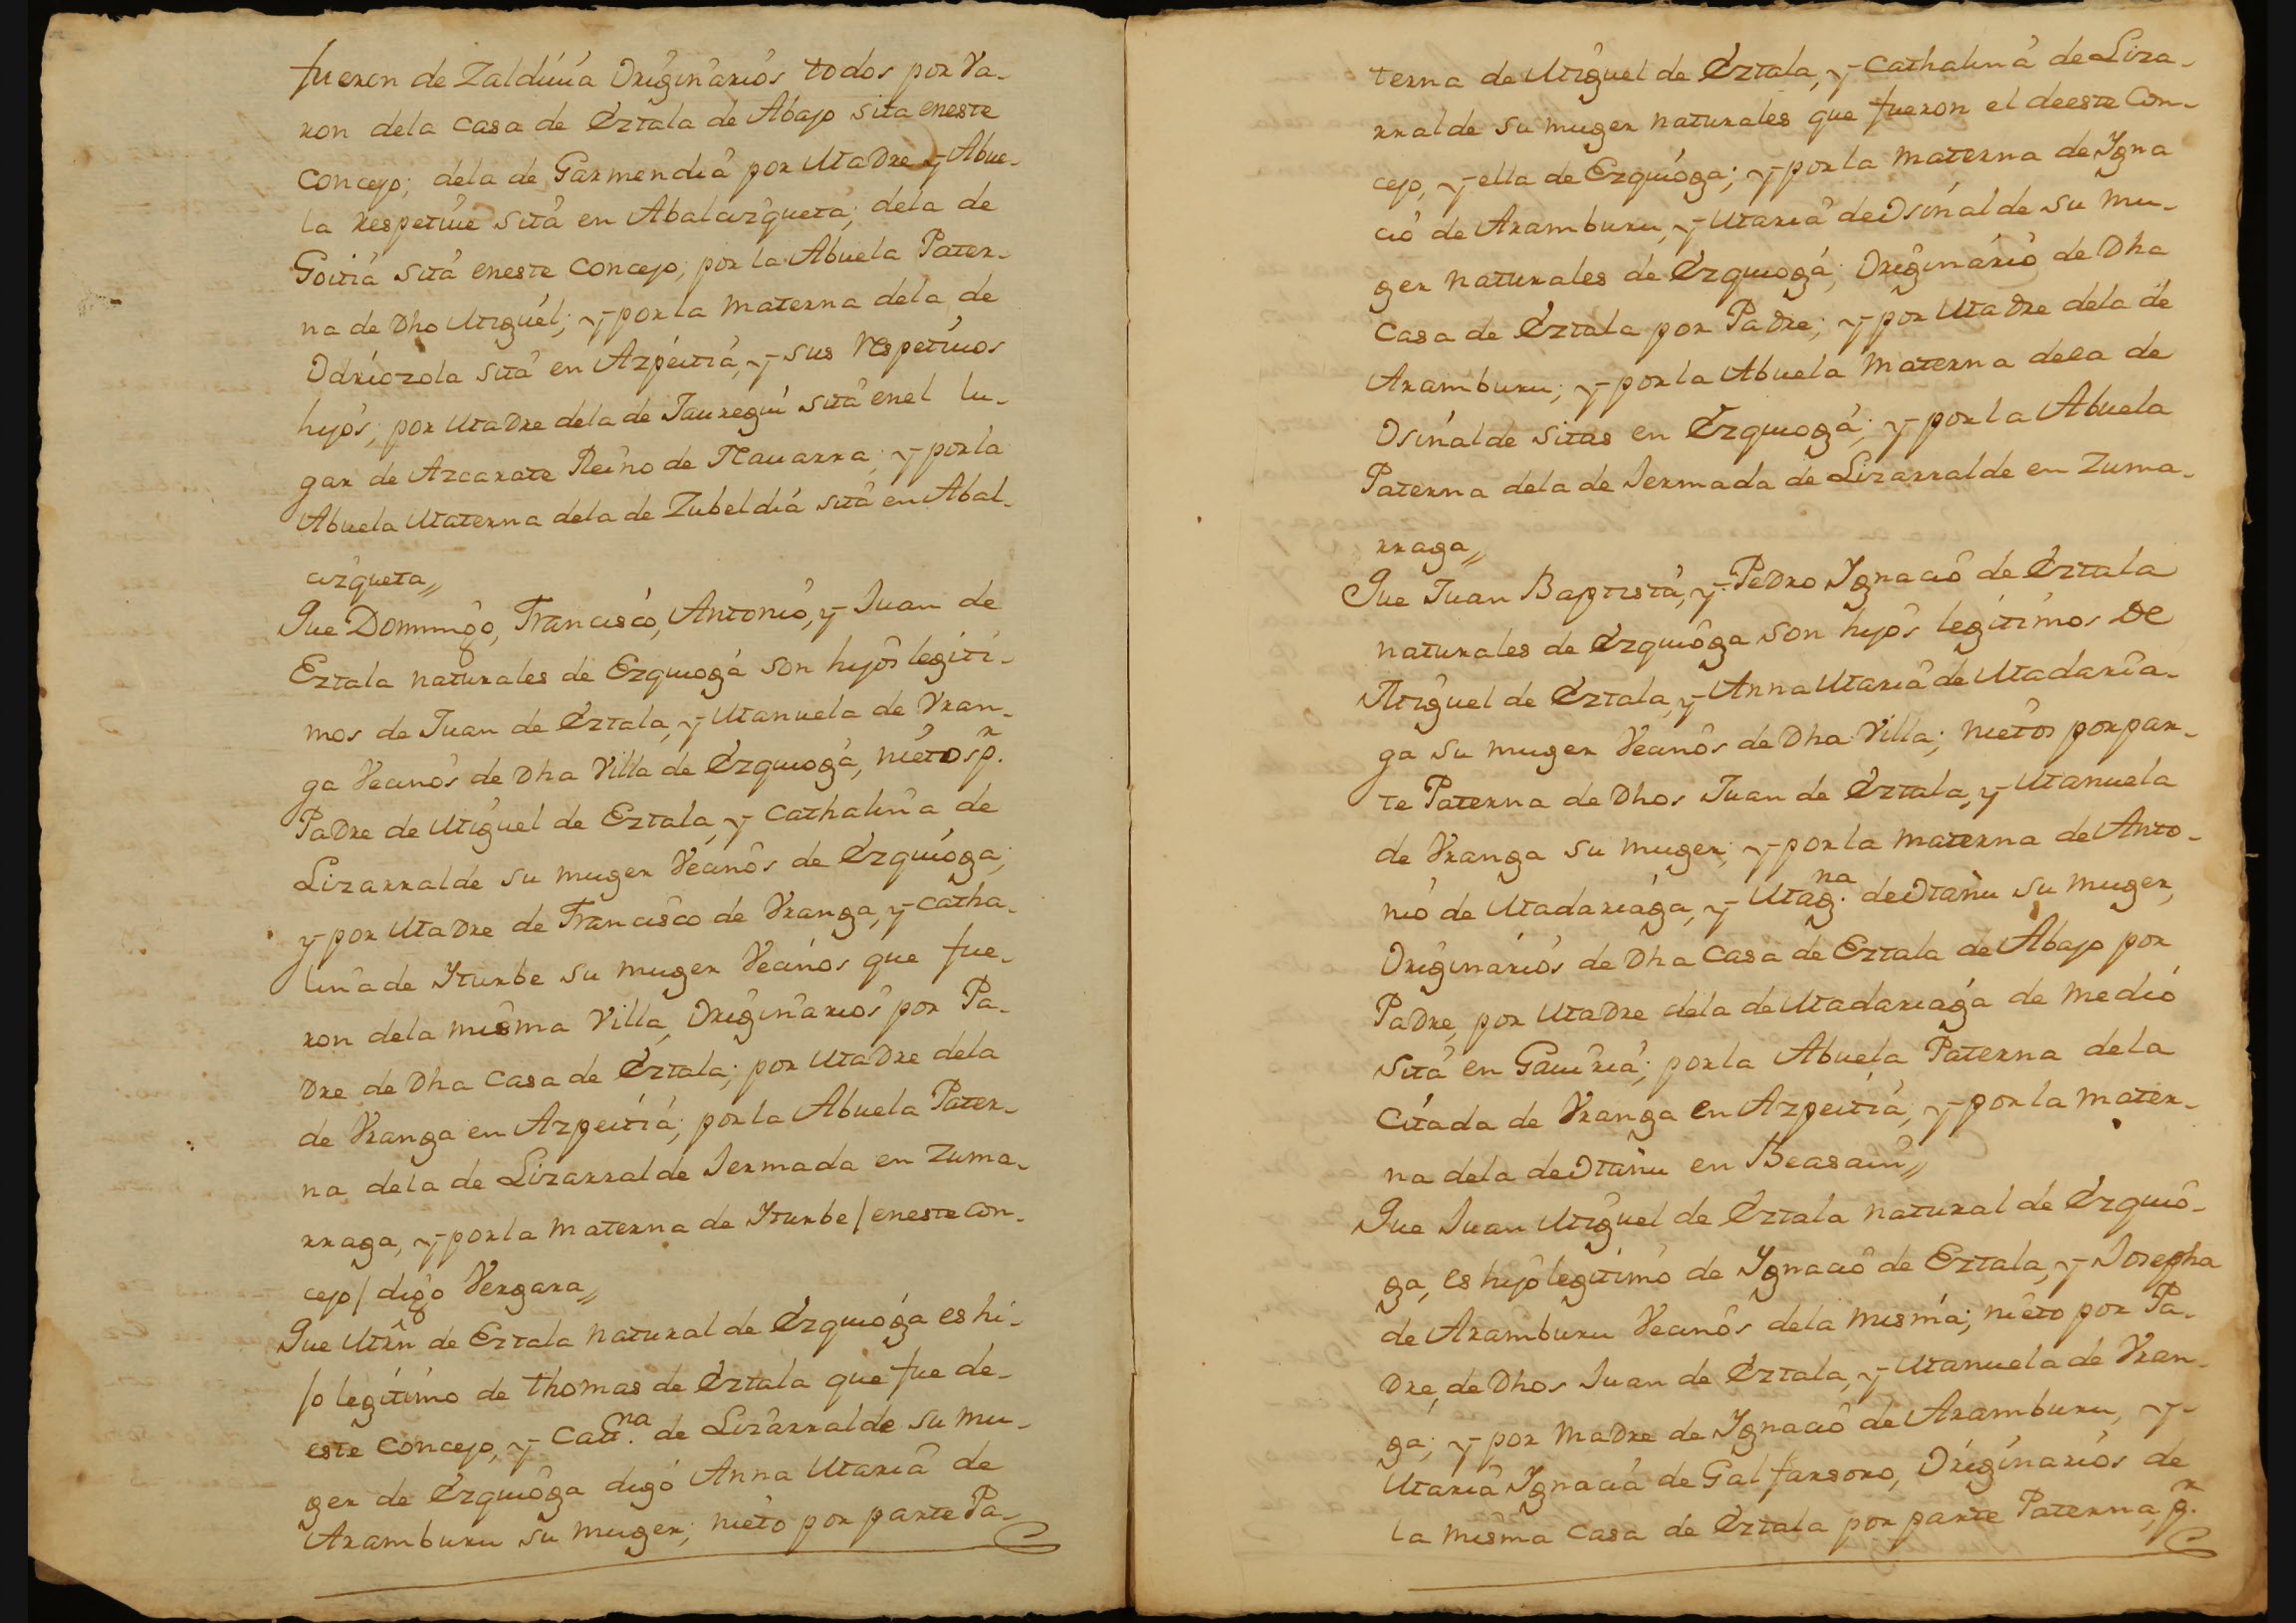 fueron de Zaldiuia Originarios todos por Va-
ron dela casa de Eztala de Abajo sita eneste
concejo; dela de Garmendia por Madre y Abue-
la respetiue sita en Abalcizqueta; dela de
Goitia sita eneste concejo, por la Abuela Pater-
na de Dho Miguel; y por la materna dela de
Odriozola sita en Azpeitia, y sus respetiuos
hijos, por Madre dela de Jauregui sita enel lu-
gar de Azcarate Reino de Nauarra; y por la
Abuela Materna dela de Zubeldia sita en Abal-
cizqueta,,
Que Domingo, Francisco, Antonio, y Juan de
Eztala naturales de Ezquioga son hijos legiti-
mos de Juan de Eztala, y Manuela de Vran-
ga Vecinos de Dha Villa de Ezquioga, nietos pr.
Padre de Miguel de Eztala, y Cathalina de
Lizarralde su muger Vecinos de Ezquioga;
y por Madre de Francisco de Vranga, y Catha-
lina de Yturbe su muger Vecinos que fue-
ron dela misma Villa, Originarios por Pa-
dre de Dha casa de Eztala; por Madre dela
de Vranga en Azpeitia; por la Abuela Pater-
na dela de Lizarralde Jermada en Zuma-
rraga, y por la materna de Yturbe / eneste con-
cejo / digo Vergara,,
Que Mrn de Eztala natural de Ezquioga es hi-
jo legitimo de Thomas de Eztala que fue de-
este concejo, y Catna. de Lizarralde su mu-
ger de Ezquioga digo Anna Maria de
Aramburu su muger; nieto por parte Pa-
terna de Miguel de Eztala, y Cathalina de Liza-
rralde su muger naturales que fueron el deeste con-
cejo, y ella de Ezquioga; y por la materna de Ygna
cio de Aramburu, y Maria de Osinalde su mu-
ger naturales de Ezquioga; Originario de Dha
casa de Eztala por Padre; y por Madre dela de
Aramburu; y por la Abuela materna dela de
Osinalde sitas en Ezquioga; y por la Abuela
Paterna dela de Jermada de Lizarralde en Zuma-
rraga,,
Que Juan Baptista, y Pedro Ygnacio de Eztala
naturales de Ezquioga son hijos legitimos de
Miguel de Eztala, y Anna Maria de Madaria-
ga su muger Vecinos de Dha Villa; nietos por par-
te Paterna de Dhos Juan de Eztala, y Manuela
de Vranga su muger; y por la materna de Anto-
nio de Madariaga, y Magna. de Otañu su muger,
Originarios de Dha casa de Eztala de Abajo por
Padre, por Madre dela de Madariaga de medio
sita en Gauiria; por la Abuela Paterna dela
citada de Vranga en Azpeitia; y por la mater-
na dela de Otañu en Beasain,,
Que Juan Miguel de Eztala natural de Ezquio-
ga, es hijo legitimo de Ygnacio de Eztala, y Josepha
de Aramburu Vecinos dela misma; nieto por Pa-
dre, de Dhos Juan de Eztala, y Manuela de Vran-
ga; y por madre de Ygnacio de Aramburu, y
Maria Ygnacia de Galfarsoro, Originarios de
la misma casa de Eztala por parte Paterna, pr.